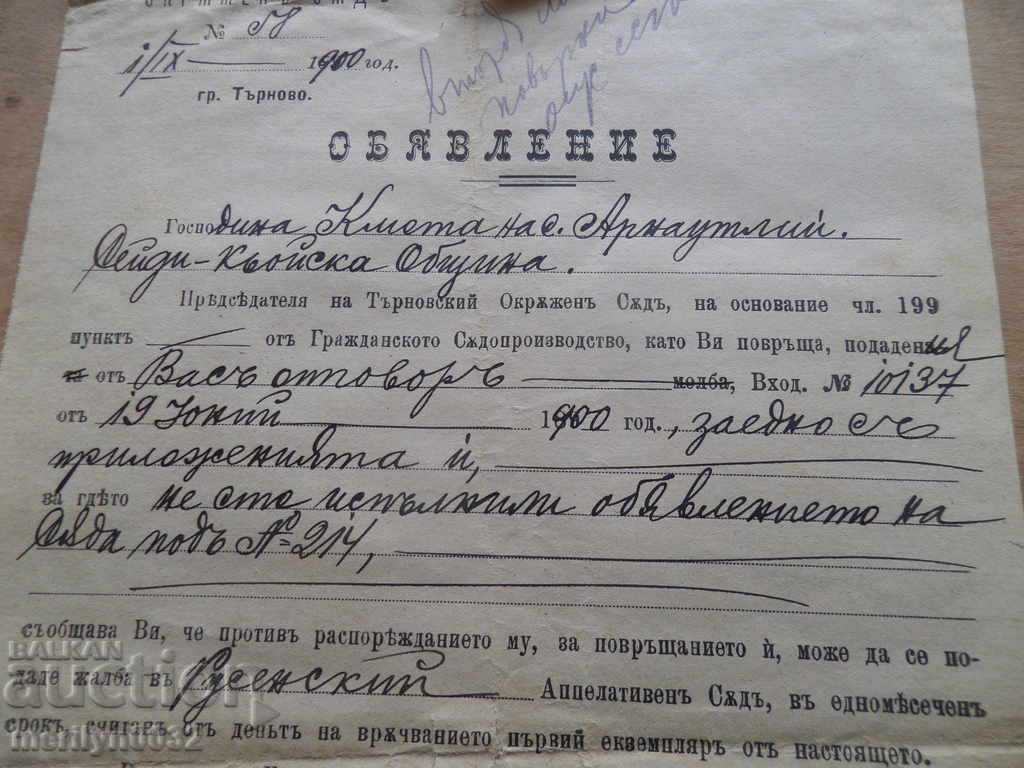 № 58
1/IX 1900 год.
гр. Търново.
второ
повърна
ОБЯВЛЕНИЕ
Господина Кмета на с. Арнаутлий.
Сейди-Кьойска Община.
Прѣдсѣдателя на Търновский Окрѫженъ Сѫдъ, на основание чл. 199
пунктъ отъ Гражданското Сѫдопроизводство, като Ви повръща, подадения
та отъ Васъ отговоръ молба, Вход. № 10137
отъ 19 Юний 1900 год., заедно съ
приложенията ѝ,
за гдѣто не сте испълнили обявлението на
Сѫда подъ № 214,
съобщава Ви, че противъ распорѣжданието му, за повръщанието ѝ, може да се по-
даде жалба въ Русенский Аппелативенъ Сѫдъ, въ едномѣсеченъ
срокъ, считанъ отъ деньтъ на врѫчванието първий екземпляръ отъ настоящето.
BALKAN
auction
merilyn0032